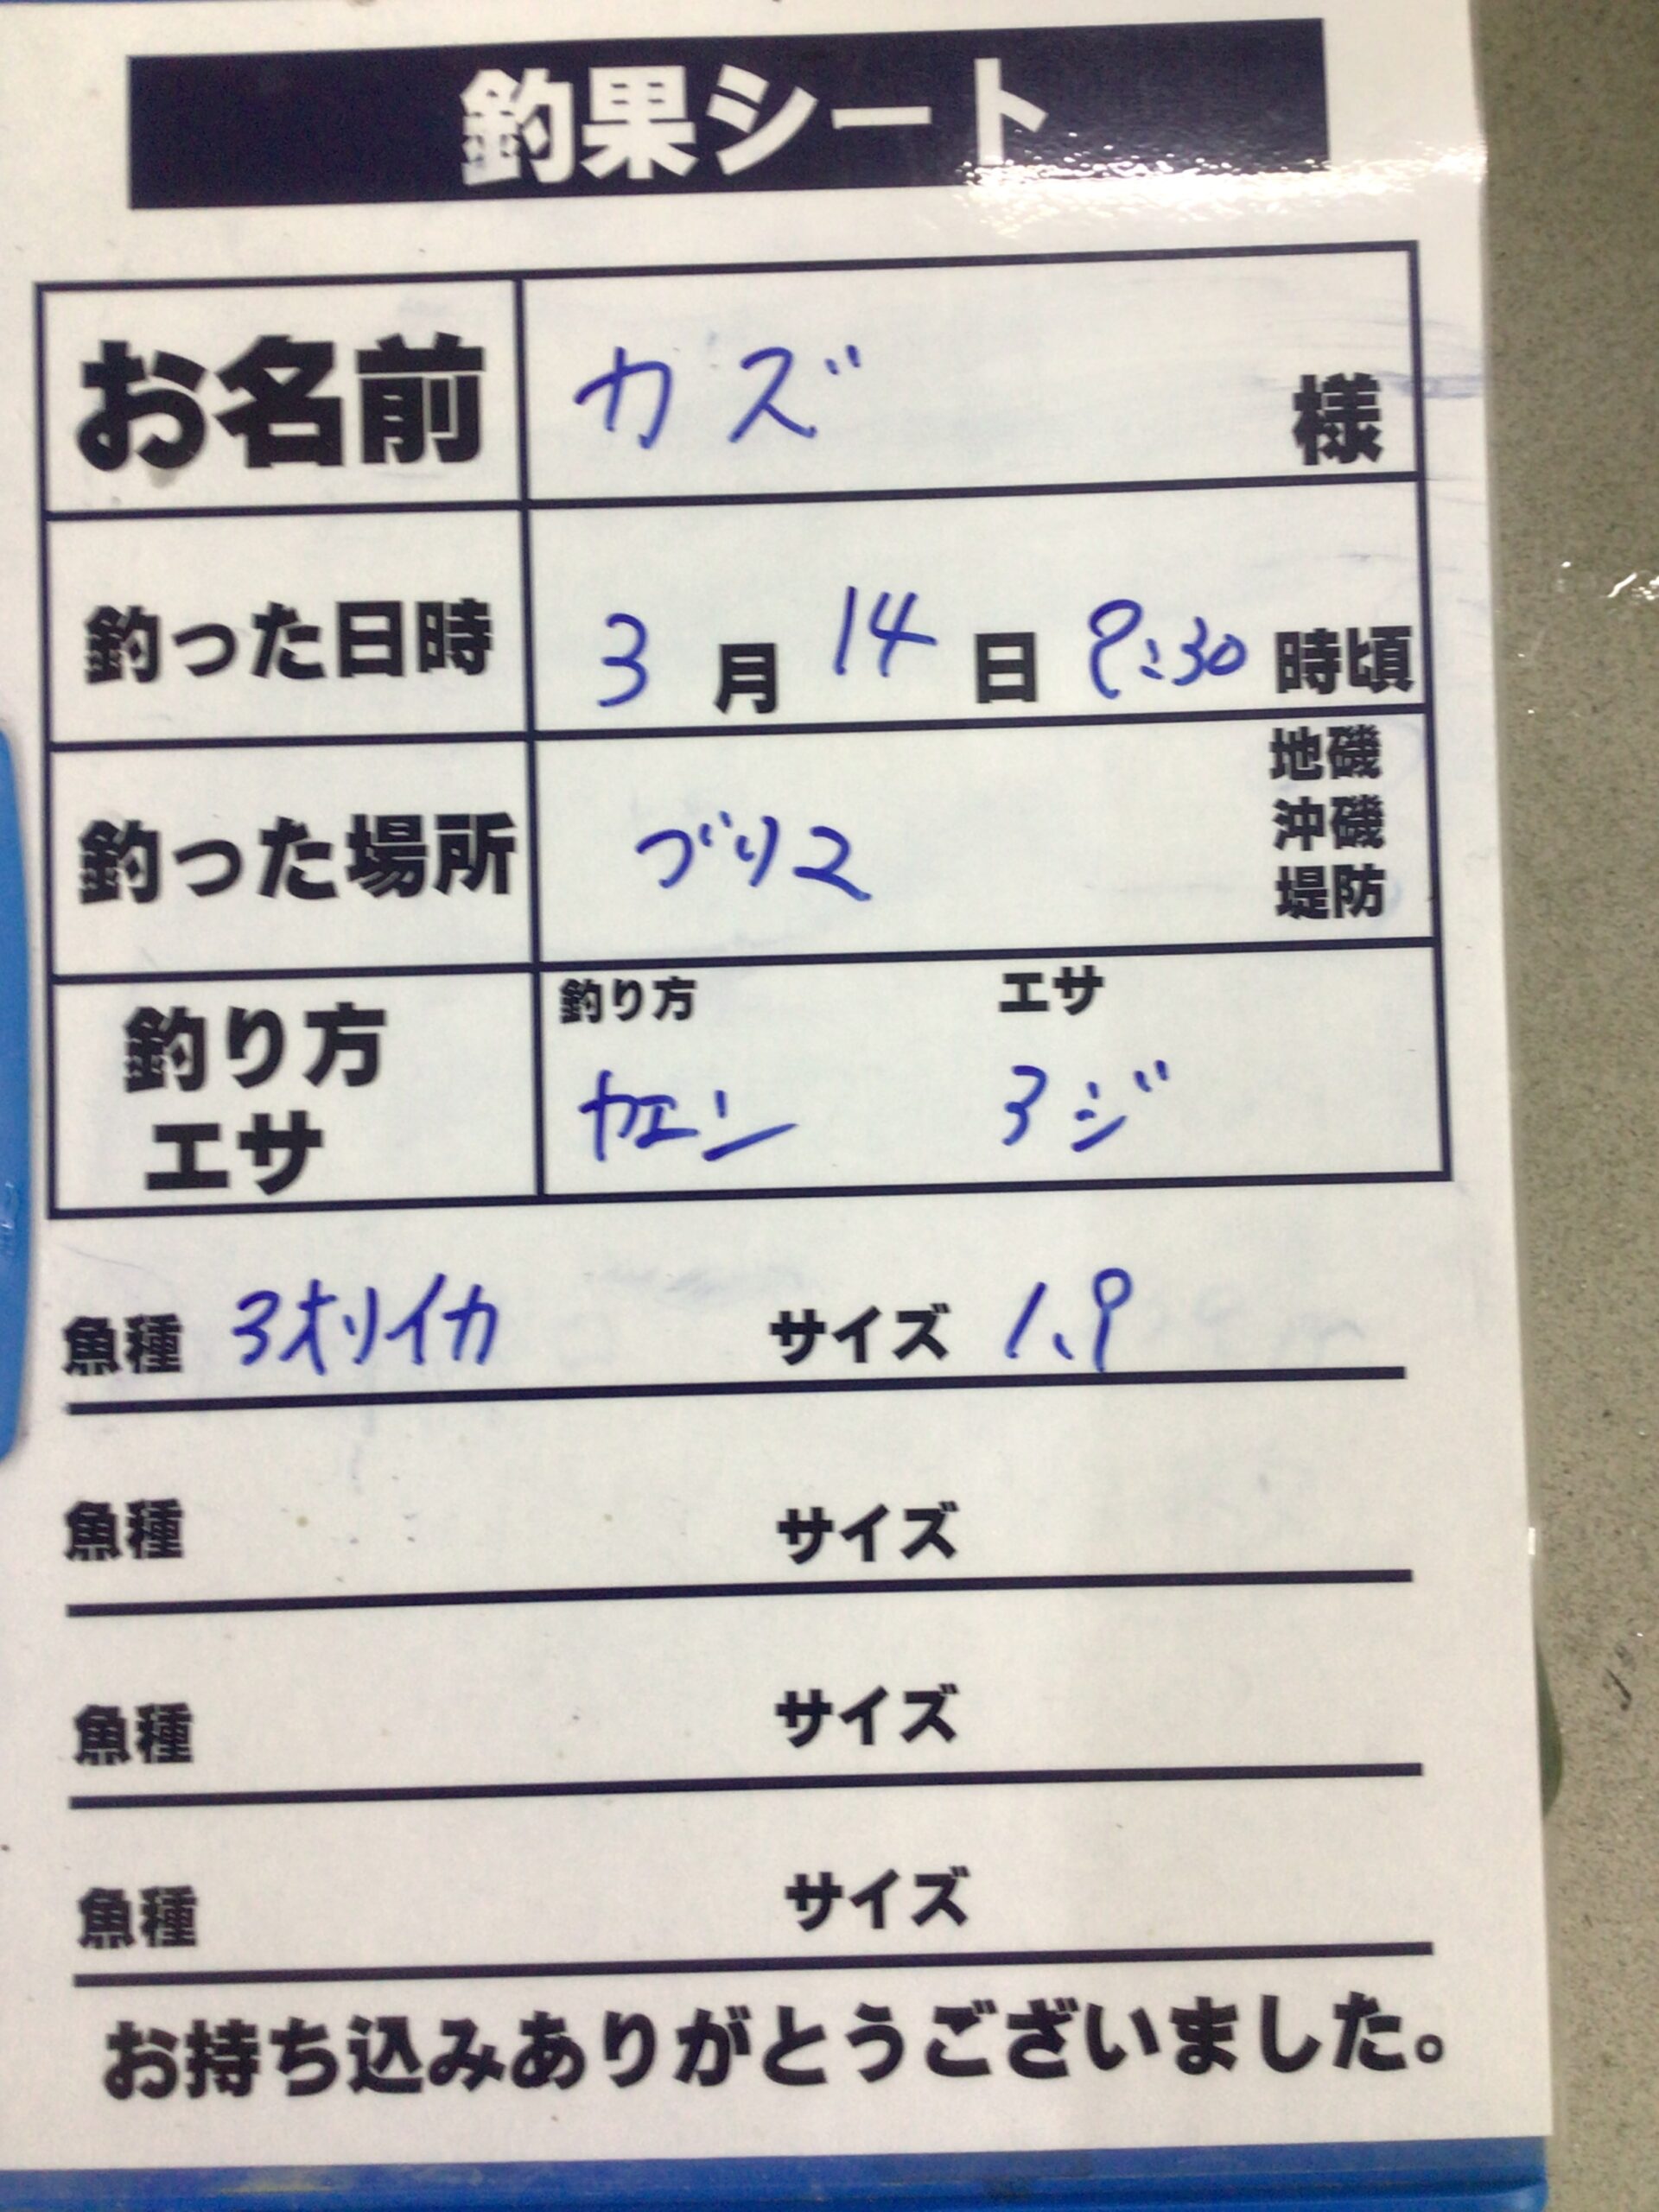 釣果シート
お名前 カズ 様
釣った日時 3月14日 9:30時頃
釣った場所 ブリ 地磯 沖磯 堤防
釣り方 エサ 釣り方 エサ
カエシ アジ
魚種 アオリイカ サイズ 1.9
魚種 サイズ
魚種 サイズ
魚種 サイズ
お持ち込みありがとうございました。